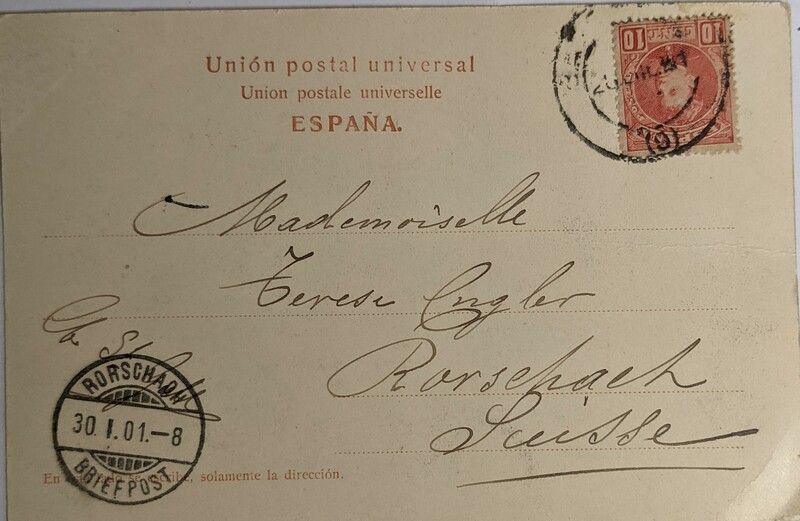 Unión postal universal
Union postale universelle
ESPAÑA.
10 10
(9)
Mademoiselle
Terese Engler
Rorschach
Suisse
RORSCHACH
30.I.01.-8
BRIEFPOST
En se escribe, solamente la dirección.